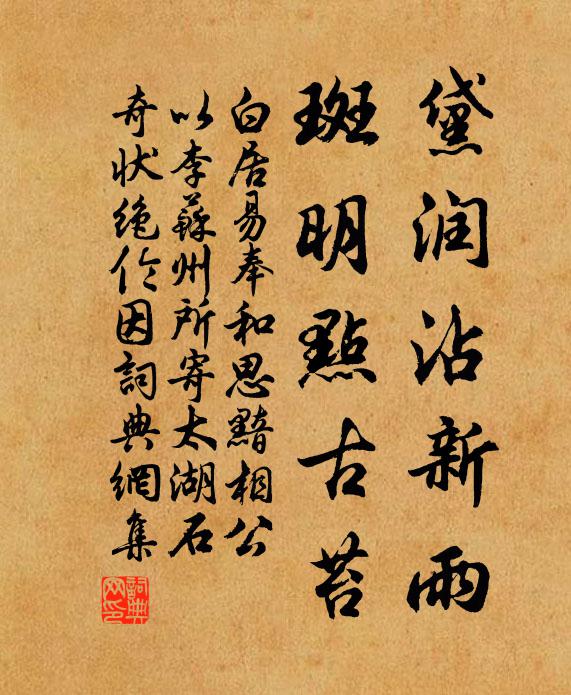 黛润沾新雨
斑明點古苔
白居易奉和思黯相公
以李蘇州所寄太湖石
奇状绝伦因詞典網集
詞典网印